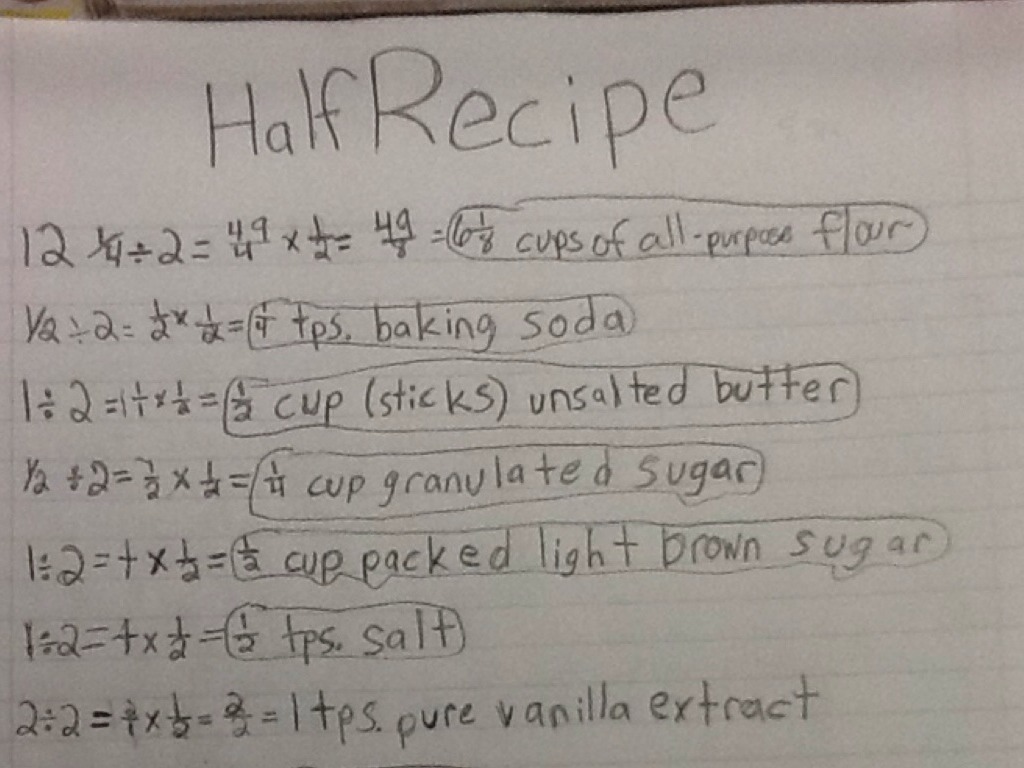 Half Recipe
12 1/4 ÷ 2 = 49/4 × 1/2 = 49/8 = 6 1/8 cups of all-purpose flour
1/2 ÷ 2 = 1/2 × 1/2 = 1/4 tps. baking soda
1 ÷ 2 = 1 1/1 × 1/2 = 1/2 cup (sticks) unsalted butter
1/2 ÷ 2 = 1/2 × 1/2 = 1/4 cup granulated sugar
1 ÷ 2 = 1/1 × 1/2 = 1/2 cup packed light brown sugar
1 ÷ 2 = 1/1 × 1/2 = 1/2 tps. salt
2 ÷ 2 = 2/1 × 1/2 = 2/2 = 1 tps. pure vanilla extract